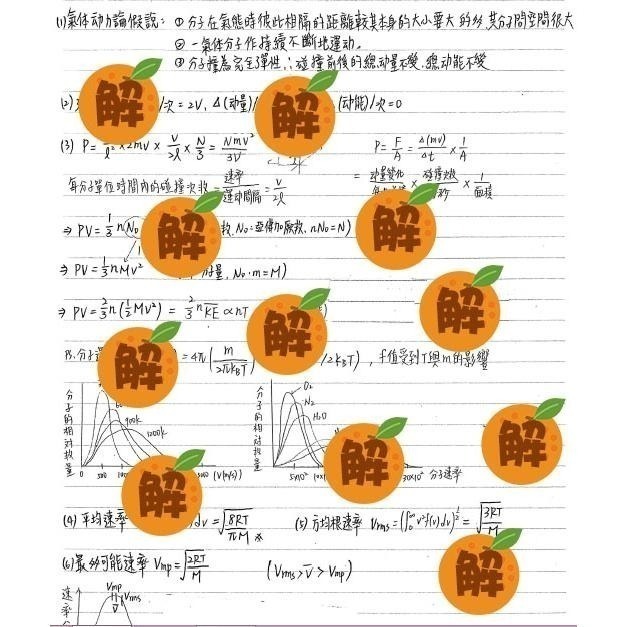 (1)氣体动力論假說: ①分子在氣態時彼此相隔的距離較其本身的大小要大的多,其分子間空間很大
②一氣体分子作持續不斷地運动。
③分子撞為完全彈性,∴碰撞前後的總动量不变,總动能不变
(2) 解 /次=2V, Δ(动量)/ 解 (动能)/次=0
(3) P= 解 ×2mV × V/2l × N/3 = NmV²/3V 解 P= F/A = Δ(mv)/Δt × 1/A
每分子單位時間內的碰撞次數 = 速率/運动間隔 = V/2l
= 动量变化 × 碰撞次數 × 1/面積
⇒ PV= 1/3 n(N₀ 解 N₀:亞佛加厥數, nN₀=N) 解
⇒ PV= 1/3 nMv² 解 N₀·m=M)
⇒ PV= 2/3 n(1/2 Mv²) = 2/3 n KE ∝ nT 解 解
PS.分子 解 =4π( m/2πkBT ) 解 /2kBT), f值受到T與m的影響
分子的相對數量 900k 1200k 0 500 (V(m/s))
分子的相對數量 O₂ N₂ H₂O 5x10² 30x10² 分子速率
解 解 解
(4) 平均速率 解 dv = √(8RT/πM) (5) 方均根速率 Vrms = (∫₀^∞ v²f(v)dv)^½ = √(3RT/M)
(6)最多可能速率 Vmp = √(2RT/M) (Vrms > V̄ > Vmp) 解
速率 Vmp V̄ Vrms